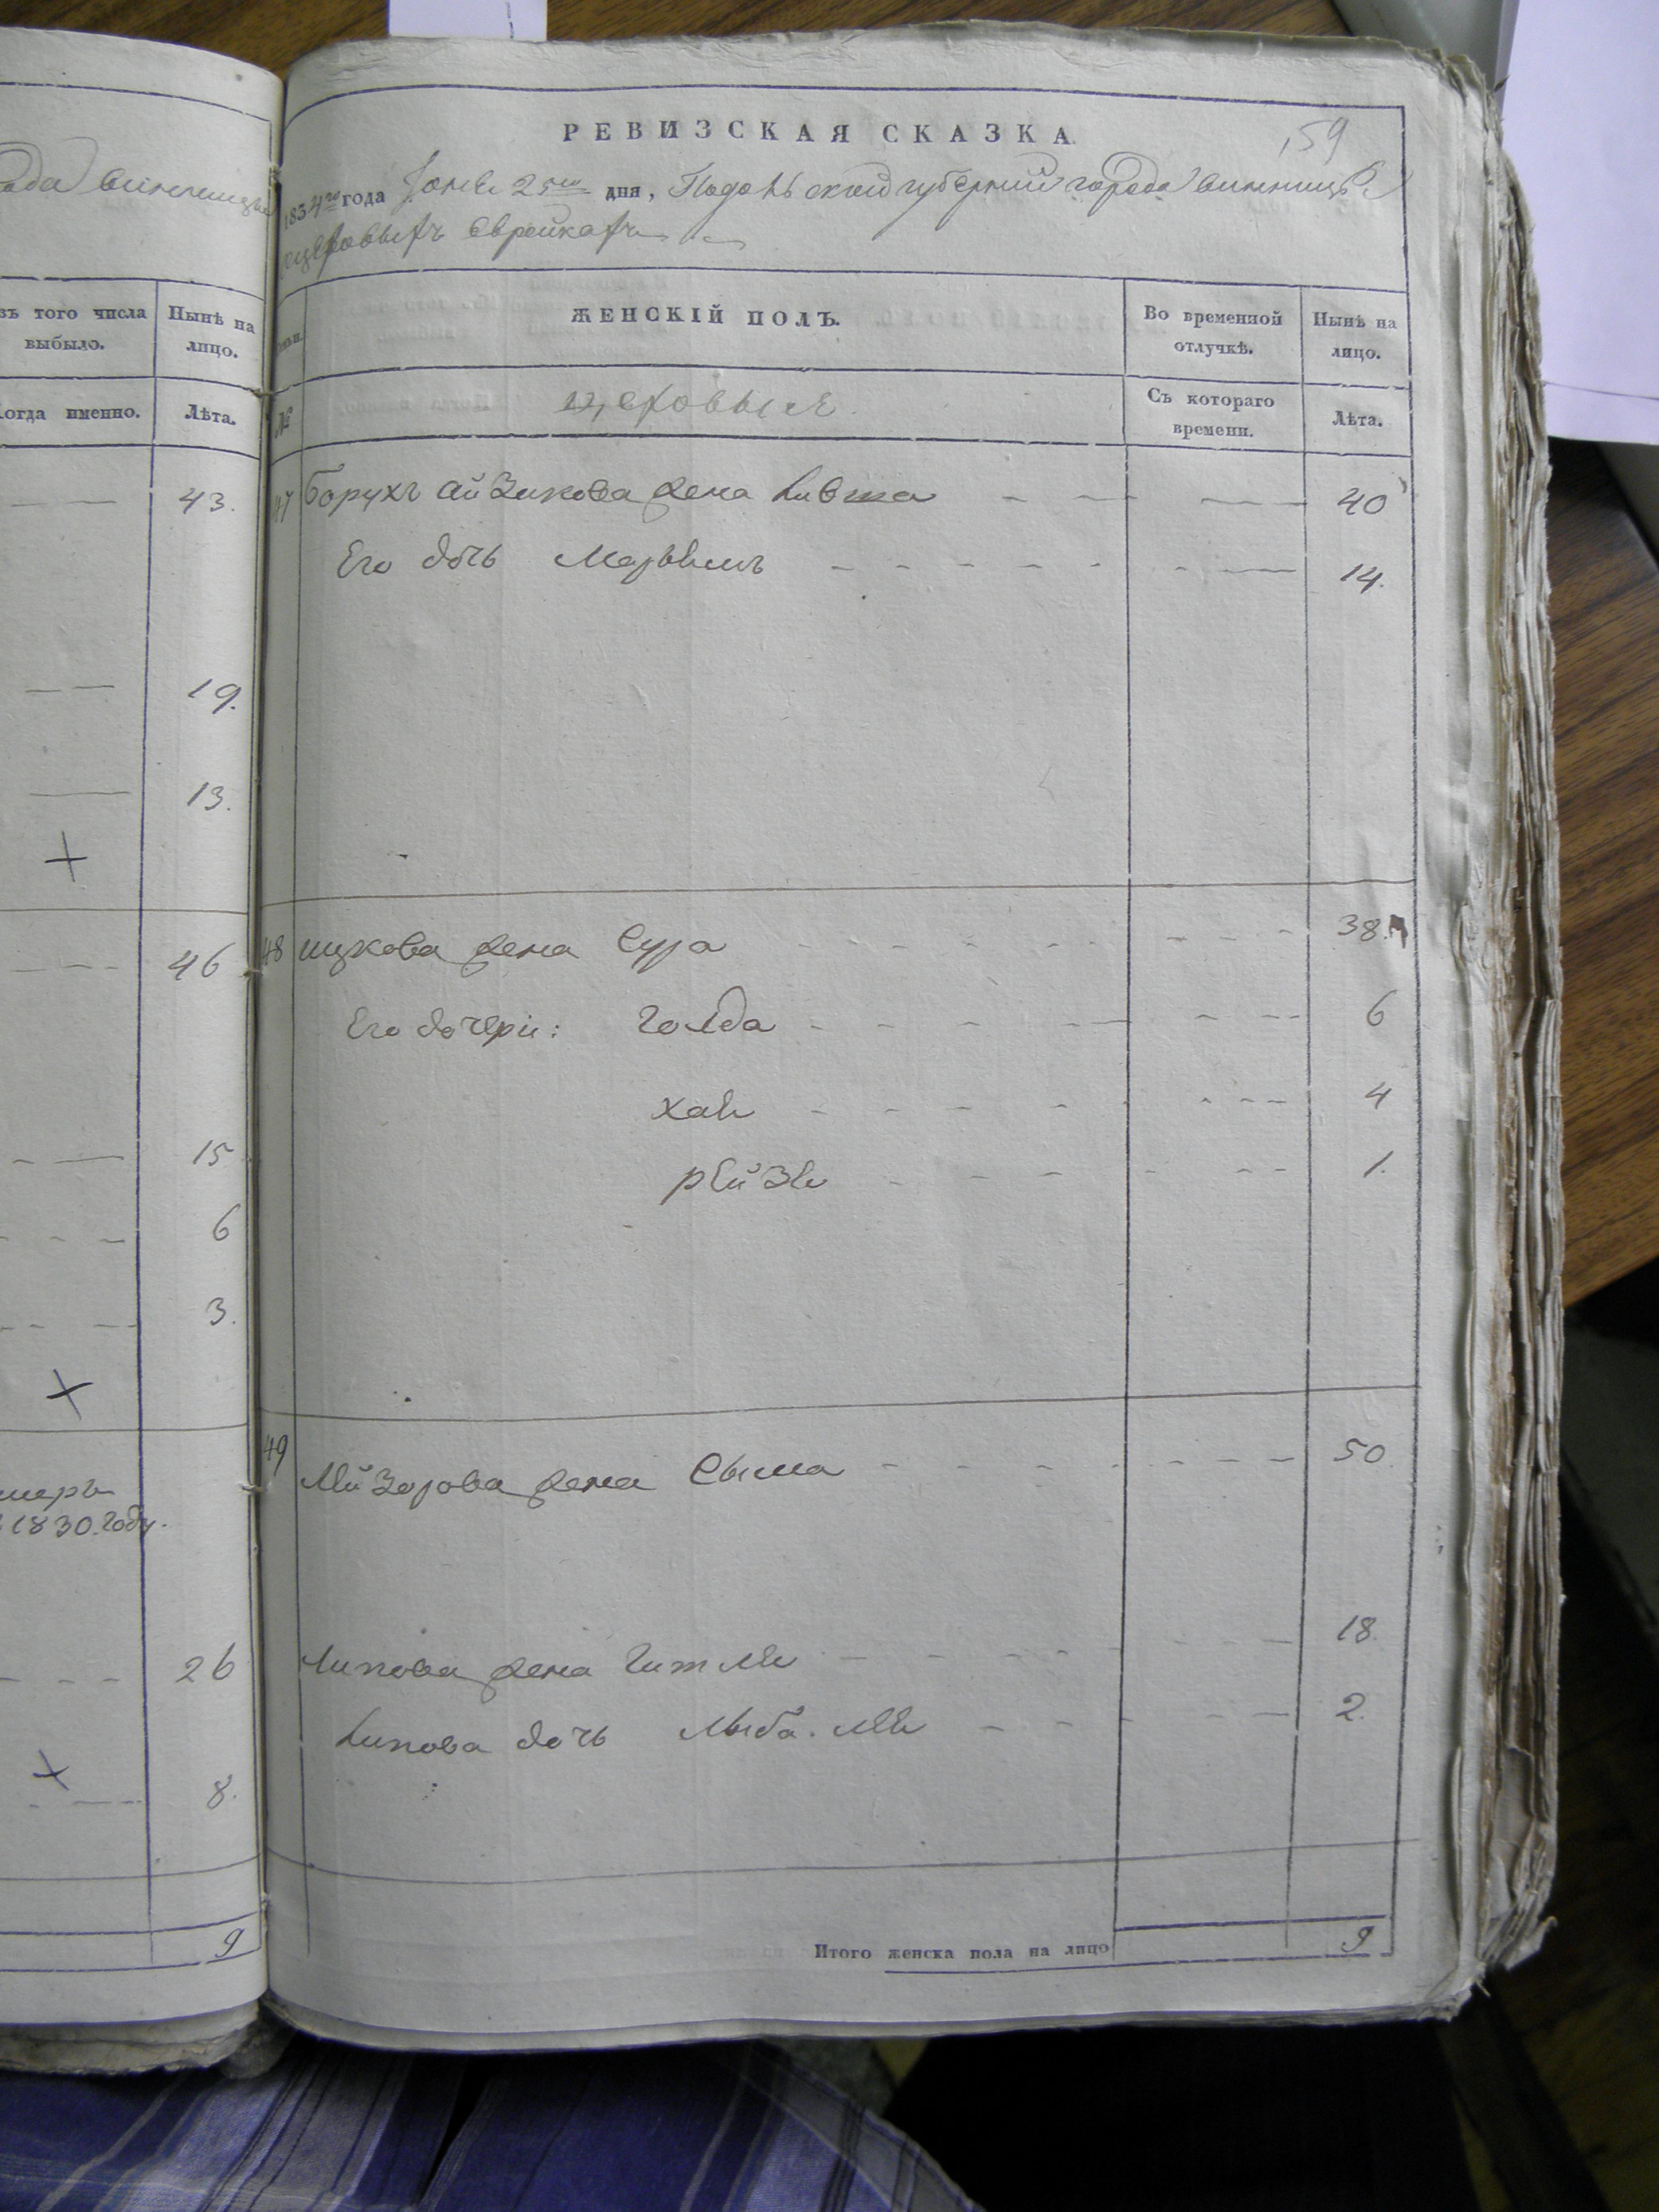 ада винницы
зъ того числа выбыло.
Нынѣ на лицо.
Когда именно.
Лѣта.
43.
19.
13.
46
15
6
3.
1830. году.
26
8.
9
РЕВИЗСКАЯ СКАЗКА
59
1834го года Iюня 25го дня, Подольской губернии города винницы
цеховыхъ Еврейкахъ
ЖЕНСКІЙ ПОЛЪ.
Во временной отлучкѣ.
Нынѣ на лицо.
№
цеховые
Съ котораго времени.
Лѣта.
47 Борухъ Айзикова жена Ривка 40
Его дочь Марьямъ 14.
48 ицкова жена Сура 38.
Его дочери: Голда 6
хая 4
рейзя 1.
49 Лейзорова жена Сыма 50
Липова жена Гитля 18.
Липова дочь 2.
Итого женска пола на лицо 9